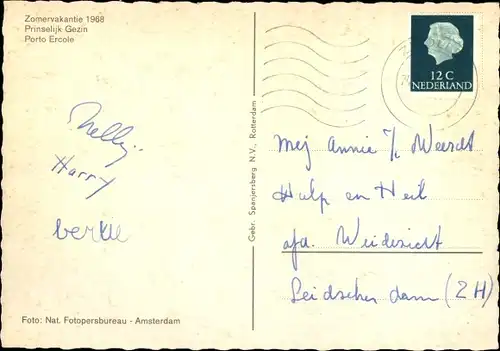 Zomervakantie 1968
Prinselijk Gezin
Porto Ercole
12 C
NEDERLAND
Nelly
Harry
Gebr. Spanjersberg N.V., Rotterdam
Mej Annie v/d Weerdt
Hulp en Heil
afd. Weidezicht
Leidschendam (ZH)
Foto: Nat. Fotopersbureau - Amsterdam